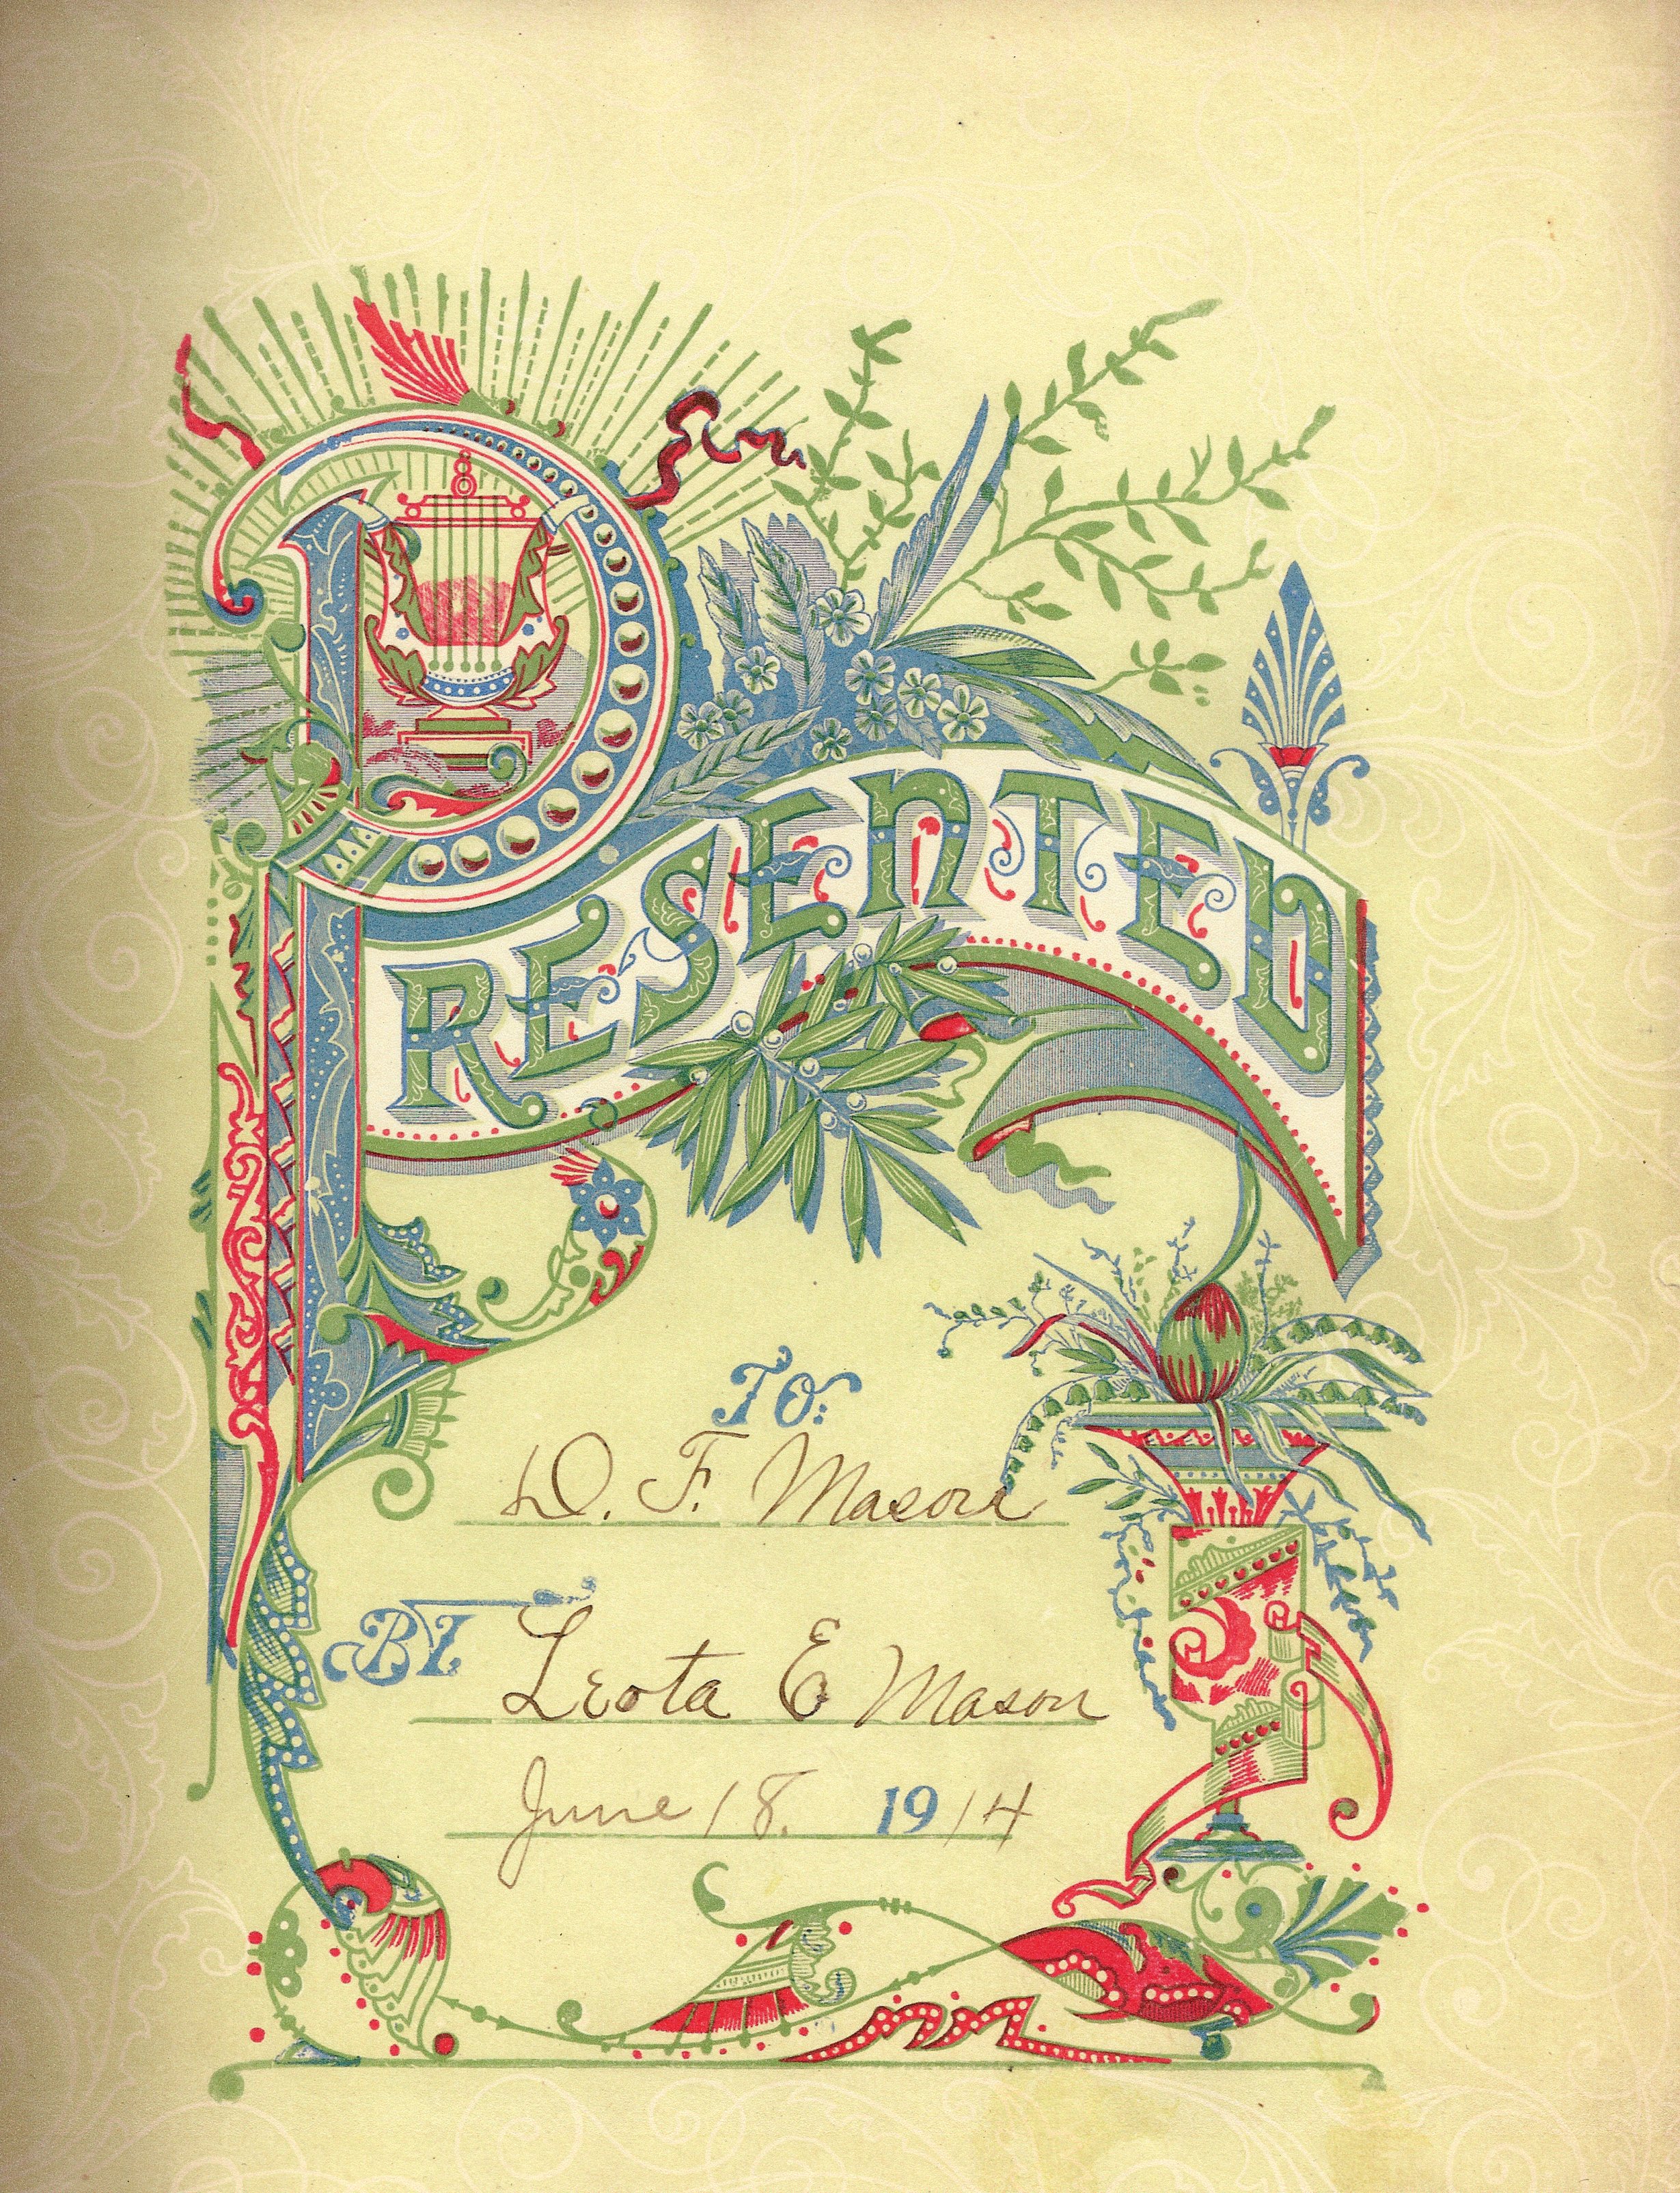 PRESENTED
TO:
D. F. Mason
BY Leota E Mason
June 18. 1914